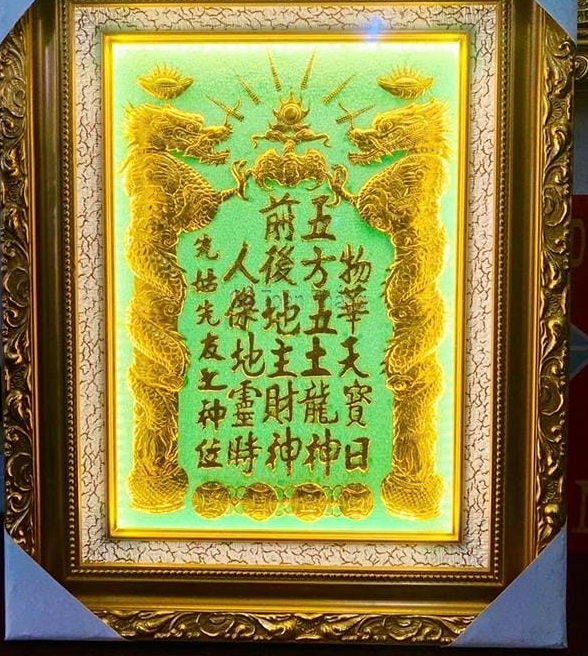 物華天寶日
五方五土龍神
前後地主財神
人傑地靈時
姑先友之神位